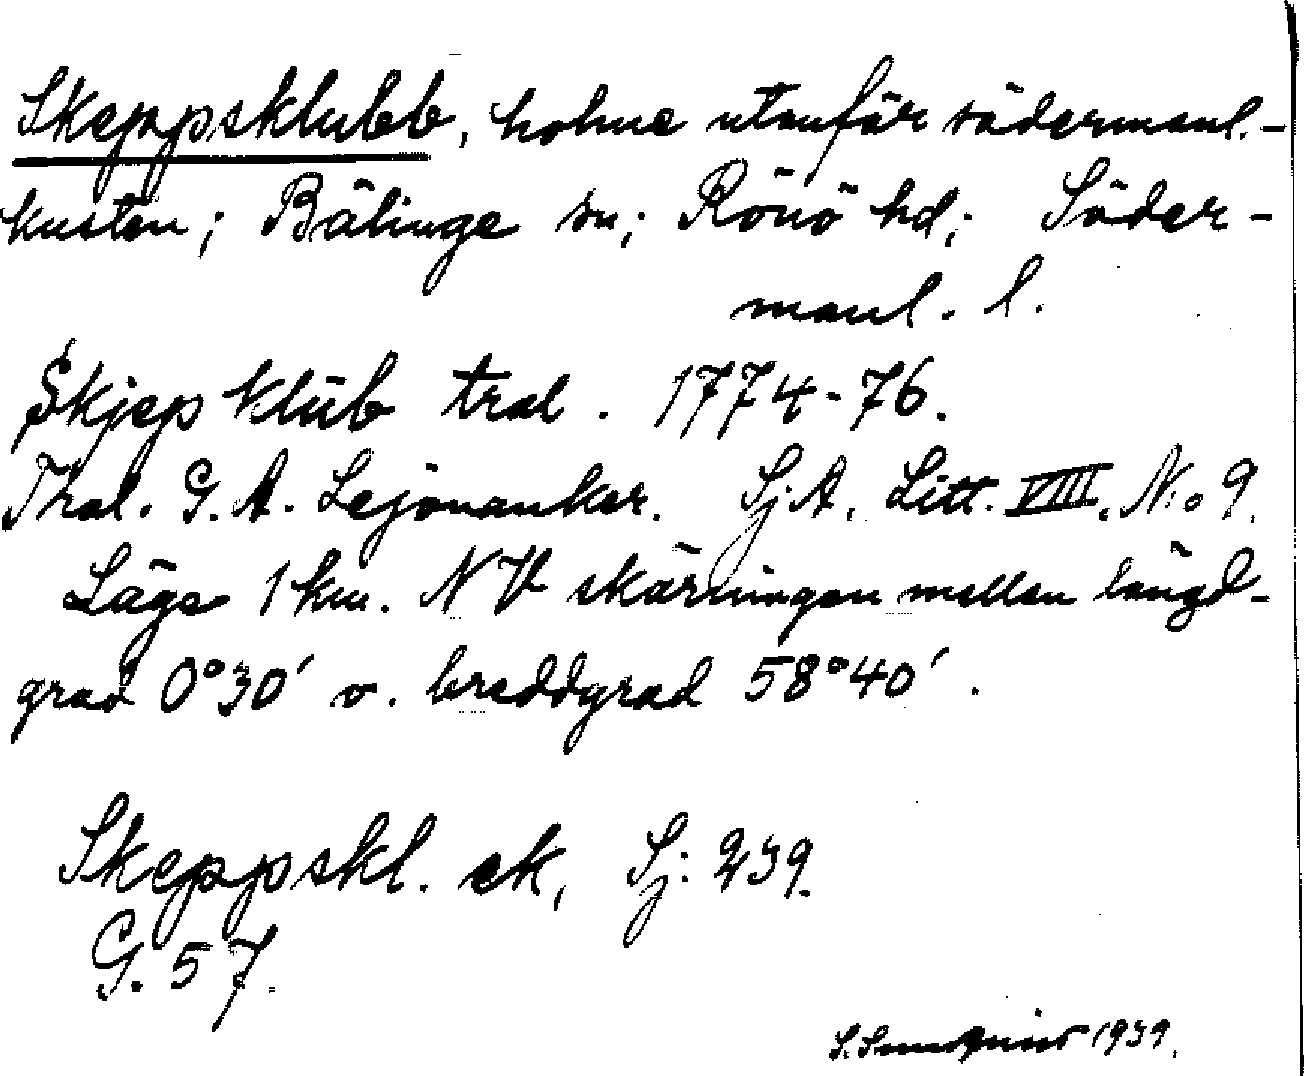 Skeppsklubb, holme utanför södermanl.-
kusten; Bälinge sn; Rönö hd; Söder-
manl. l.
Skjep Klüb tral. 1774-76.
Thal. G. A. Lejonanker. Sj.A. Litt. VIII. No 9.
Läge 1 km. NV skärningen mellan längd-
grad 0°30′ o. breddgrad 58°40′.
Skeppskl. ek, Sj: 239.
G. 57.
1939.